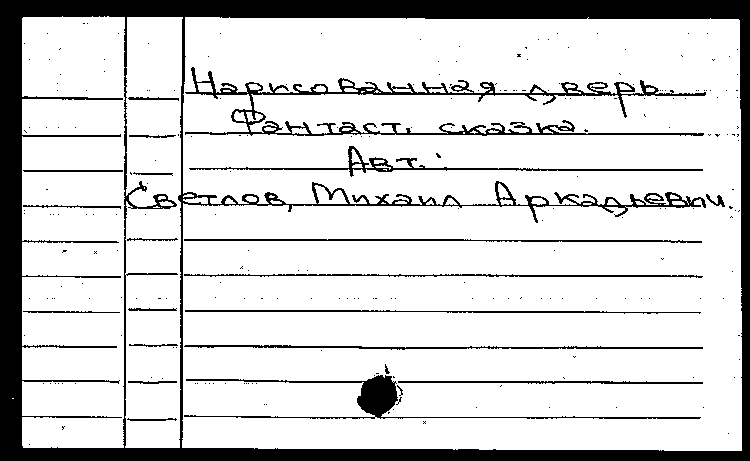 Нарисованная дверь.
Фантаст. сказка.
Авт.:
Светлов, Михаил Аркадьевич.